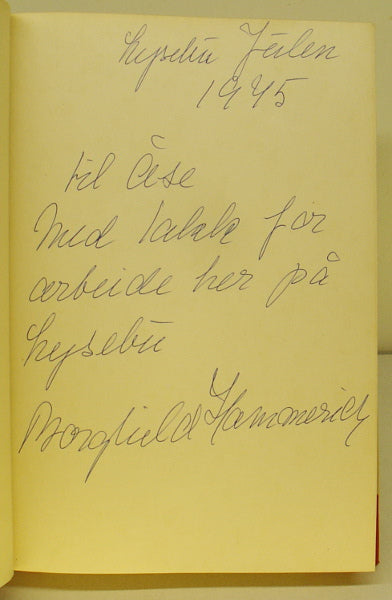 Lysebu Julen
1945
til Åse
Med takk for
arbeide her på
Lysebu
Borghild Hammerich